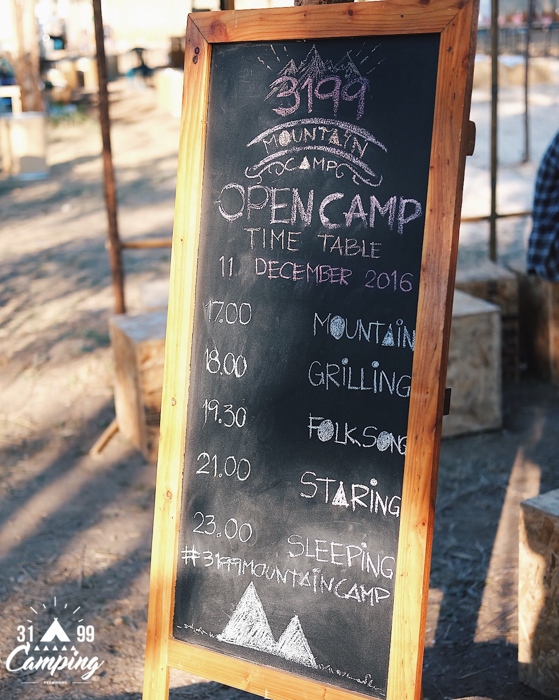 3199
MOUNTAIN
CAMP
OPEN CAMP
TIME TABLE
11 DECEMBER 2016
17.00 MOUNTAIN
18.00 GRILLING
19.30 FOLKSONG
21.00 STARING
23.00 SLEEPING
#3199MOUNTAINCAMP
31 99
Camping